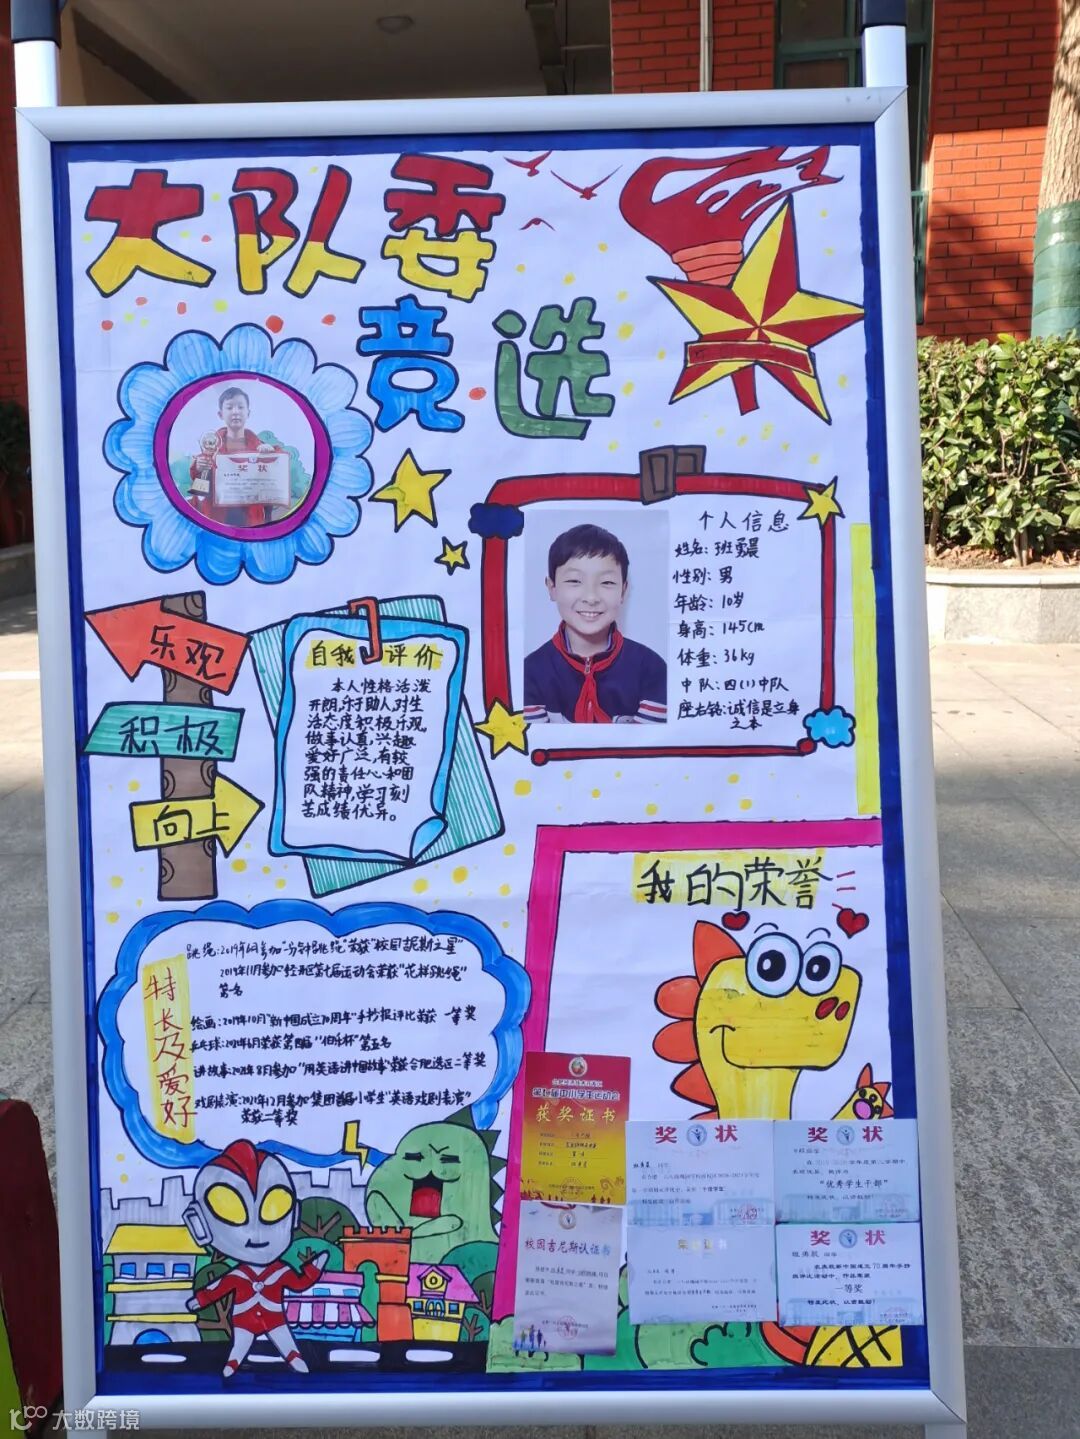 大队委
竞选
奖状
个人信息
姓名：班勇晨
性别：男
年龄：10岁
身高：145cm
体重：36kg
中队：四(1)中队
座右铭：诚信是立身
之本
乐观
积极
向上
自我评价
本人性格活泼
开朗,乐于助人,对生
活态度积极乐观。
做事认真,兴趣
爱好广泛,有较
强的责任心和团
队精神,学习刻
苦成绩优异。
我的荣誉
特长及爱好
跳绳:2019年6月参加"一分钟跳绳"荣获"校园吉尼斯之星"
2019年11月参加"经开区第七届运动会荣获"花样跳绳"
第一名
绘画:2019年10月"新中国成立70周年"手抄报评比荣获 一等奖
乒乓球:2020年6月荣获第四届"伯乐杯"第五名
讲故事:2021年8月参加"用英语讲中国故事"荣获合肥选区二等奖
戏剧表演:2021年12月参加集团首届小学生"英语戏剧表演"
荣获二等奖
第七届中小学生运动会
获奖证书
奖状
奖状
"优秀学生干部"
特发此状，以资鼓励！
校园吉尼斯认证书
荣誉证书
奖状
一等奖
特发此状，以资鼓励！
大数跨境